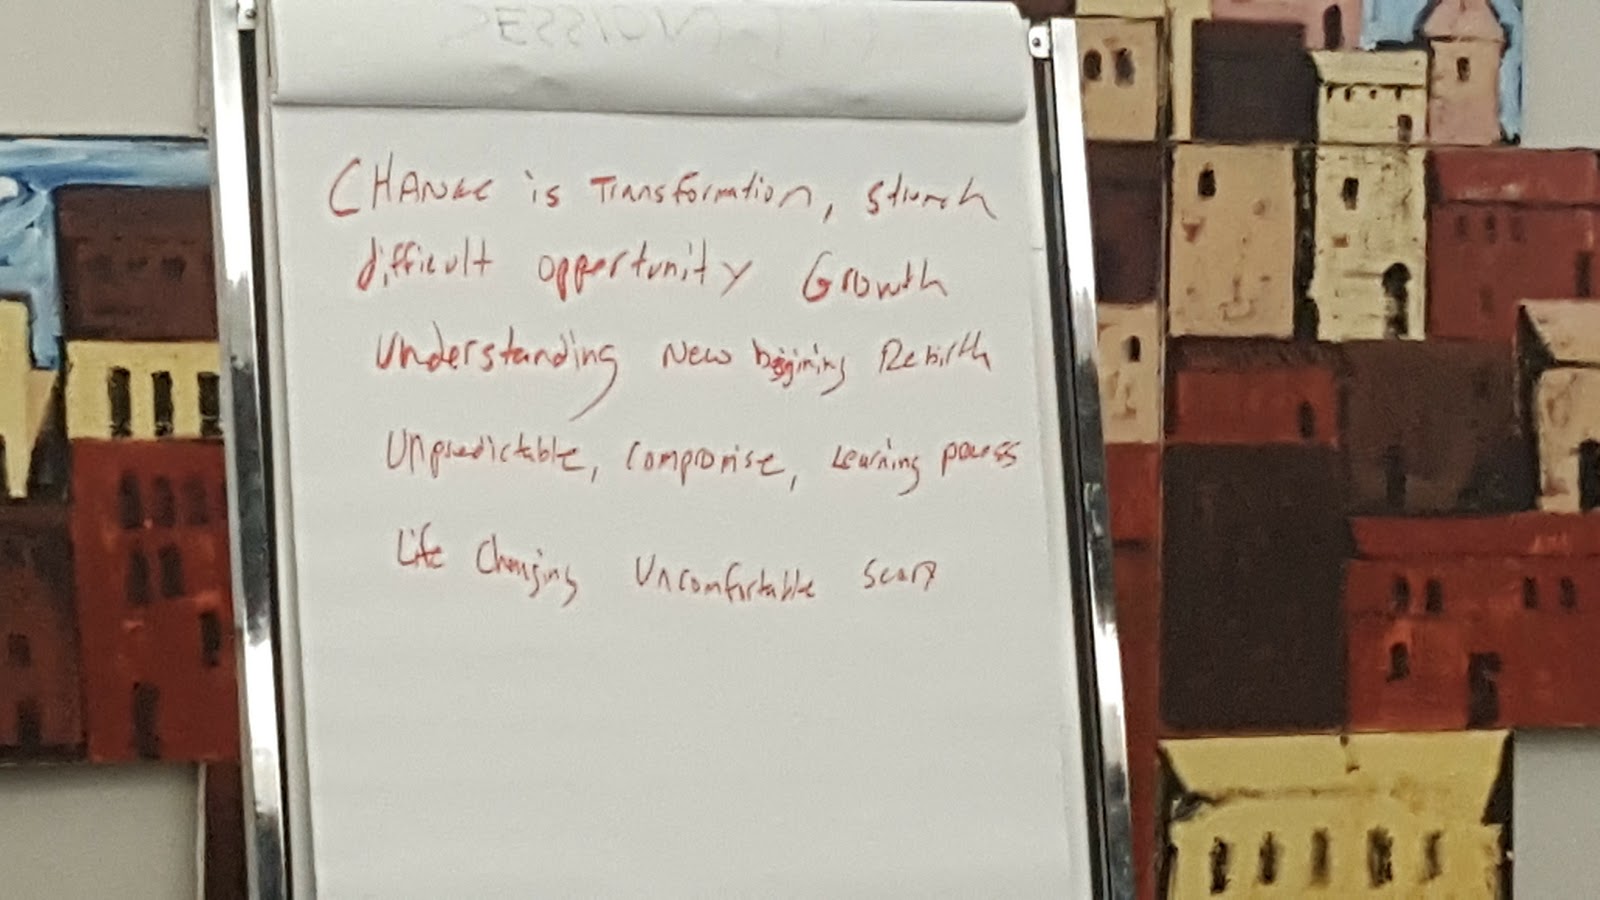 SESSION
CHANGE is Transformation,
difficult opportunity Growth
Understanding New begining Rebirth
Unpredictable, compromise, Learning process
Life Changing Uncomfortable scary